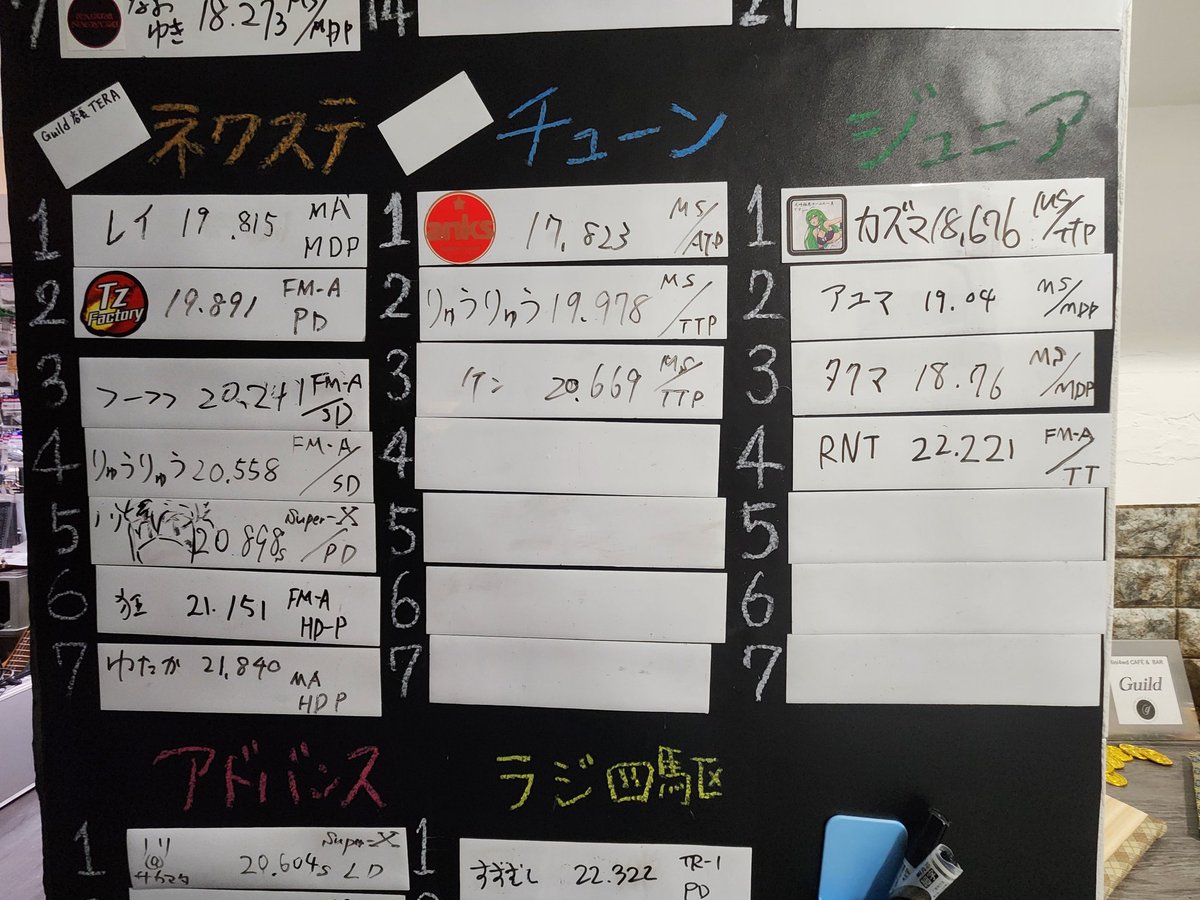 7 なおゆき 18.273 MS/MDP
14
21
Guild 店長 TERA
ネクステ
1 レイ 19.815 MA MDP
2 Tz Factory 19.891 FM-A PD
3 フーフフ 20.241 FM-A/SD
4 りゅうりゅう 20.558 FM-A/SD
5 20.898s Super-X/PD
6 狂 21.151 FM-A HD-P
7 ゆたか 21.840 MA HDP
チューン
1 anks 17.823 MS/ATP
2 りゅうりゅう 19.978 MS/TTP
3 ケン 20.669 MS/TTP
4
5
6
7
ジュニア
1 カズマ 18,676 MS/TTP
2 アユマ 19.04 MS/MDP
3 タクマ 18.76 MS/MDP
4 RNT 22.221 FM-A/TT
5
6
7
アドバンス
1 サカマタ 20.604s Super-X LD
ラジ四駆
1 すずむし 22.322 TR-1 PD
mini4wd CAFE & BAR
Guild